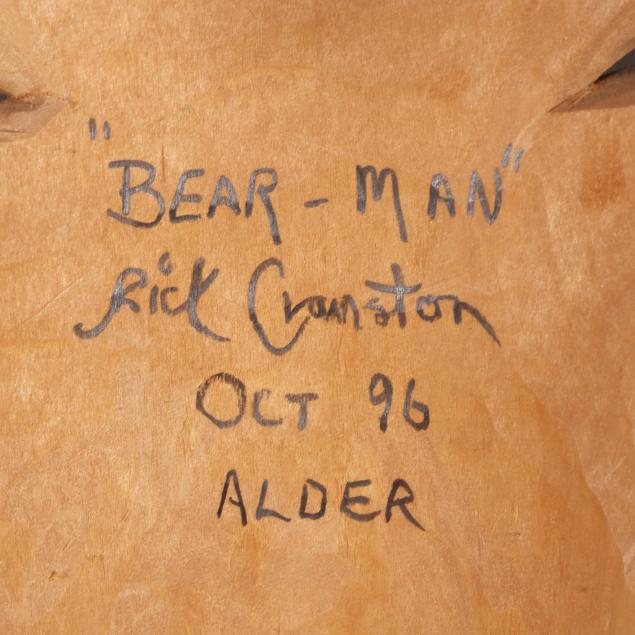 "BEAR - MAN"
Rick Cranston
OCT 96
ALDER